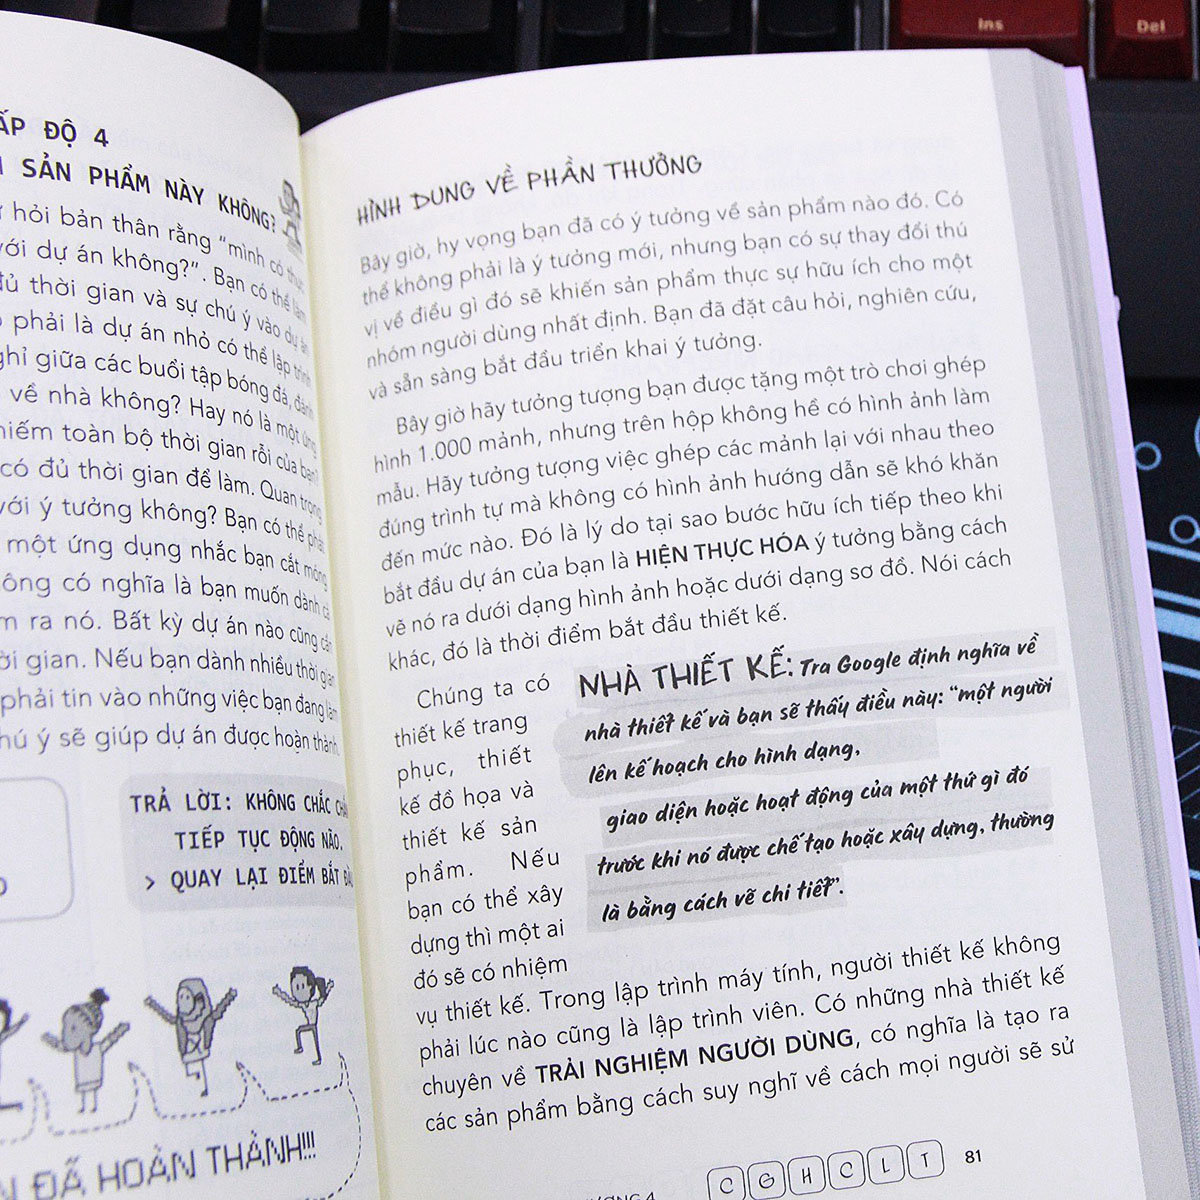 Ins
Del
ĐỘ 4
SẢN PHẨM NÀY KHÔNG?
hỏi bản thân rằng "mình có
với dự án không?". Bạn có thể làm
đủ thời gian và sự chú ý vào dự án
phải là dự án nhỏ có thể lập trình
nghỉ giữa các buổi tập bóng đá, đánh
về nhà không? Hay nó là một ứng
toàn bộ thời gian rỗi của bạn?
có đủ thời gian để làm. Quan trọng
với ý tưởng không? Bạn có thể phát
một ứng dụng nhắc bạn cắt móng
không có nghĩa là bạn muốn dành cả
ra nó. Bất kỳ dự án nào cũng cần
thời gian. Nếu bạn dành nhiều thời gian
phải tin vào những việc bạn đang làm
chú ý sẽ giúp dự án được hoàn thành.
TRẢ LỜI: KHÔNG CHẮC
TIẾP TỤC ĐỘNG NÃO.
> QUAY LẠI ĐIỂM BẮT
ĐÃ HOÀN THÀNH!!!
HÌNH DUNG VỀ PHẦN THƯỞNG
Bây giờ, hy vọng bạn đã có ý tưởng về sản phẩm nào đó. Có
thể không phải là ý tưởng mới, nhưng bạn có sự thay đổi thú
vị về điều gì đó sẽ khiến sản phẩm thực sự hữu ích cho một
nhóm người dùng nhất định. Bạn đã đặt câu hỏi, nghiên cứu,
và sẵn sàng bắt đầu triển khai ý tưởng.
Bây giờ hãy tưởng tượng bạn được tặng một trò chơi ghép
hình 1.000 mảnh, nhưng trên hộp không hề có hình ảnh làm
mẫu. Hãy tưởng tượng việc ghép các mảnh lại với nhau theo
đúng trình tự mà không có hình ảnh hướng dẫn sẽ khó khăn
đến mức nào. Đó là lý do tại sao bước hữu ích tiếp theo khi
bắt đầu dự án của bạn là HIỆN THỰC HÓA ý tưởng bằng cách
vẽ nó ra dưới dạng hình ảnh hoặc dưới dạng sơ đồ. Nói cách
khác, đó là thời điểm bắt đầu thiết kế.
Chúng ta có
thiết kế trang
phục, thiết
kế đồ họa và
thiết kế sản
phẩm. Nếu
bạn có thể xây
dựng thì một ai
đó sẽ có nhiệm
NHÀ THIẾT KẾ: Tra Google định nghĩa về
nhà thiết kế và bạn sẽ thấy điều này: "một người
lên kế hoạch cho hình dạng,
giao diện hoặc hoạt động của một thứ gì đó
trước khi nó được chế tạo hoặc xây dựng, thường
là bằng cách vẽ chi tiết".
vụ thiết kế. Trong lập trình máy tính, người thiết kế không
phải lúc nào cũng là lập trình viên. Có những nhà thiết kế
chuyên về TRẢI NGHIỆM NGƯỜI DÙNG, có nghĩa là tạo ra
các sản phẩm bằng cách suy nghĩ về cách mọi người sẽ sử
C G H C L T 81